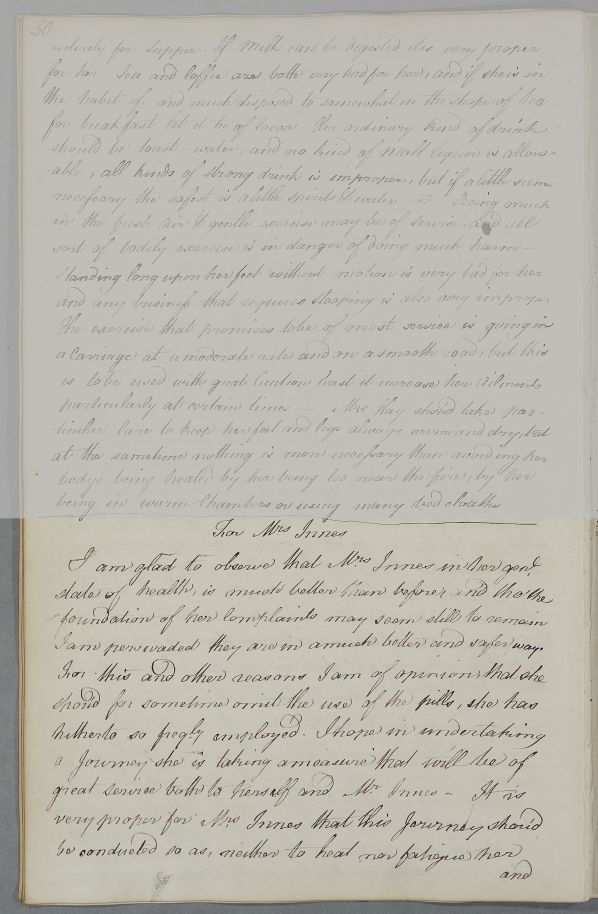 36
entirely for supper. If Milk can be digested it is very proper
for her. Tea and Coffee are both very bad for her, and if she is in
the habit of, and much disposed to somewhat in the shape of tea
for breakfast let it be of Cocoa. Her ordinary kind of drink
should be toast-water, and no kind of Malt liquor is allow-
-able, all kinds of Strong drink is improper, but if a little seem
necessary the safest is a little spirits & water — Being much
in the fresh air & gentle exercise may be of service, and all
sort of bodily exercise is in danger of doing much harm —
Standing long upon her feet without motion is very bad for her
and any business that requires stooping is also very improper
The exercise that promises to be of most service is going in
a Carriage at a moderate rate and on a smooth road, but this
is to be used with great Caution least it increase her Ailments
particularly at certain times — Mrs Hay should take par-
-ticular Care to keep her feet and legs always warm and dry, but
at the sametime nothing is more necessary than avoiding her
body's being heated by her being too near the fire, by her
being in warm Chambers or using many bed cloaths
For Mrs Innes
I am glad to observe that Mrs Innes in her genl.
state of health, is much better than before and tho' the
foundation of her Complaints may seem still to remain
I am perswaded they are in a much better and safer way.
For this and other reasons I am of opinion, that she
shou'd for sometime omit the use of the pills, she has
hitherto so freely employed. I hope in undertaking
a Journey she is taking a measure that will be of
great service both to herself and Mr Innes - It is
very proper for Mrs Innes that this Journey shou'd
be conducted so as, neither to heat nor fatigue her
and